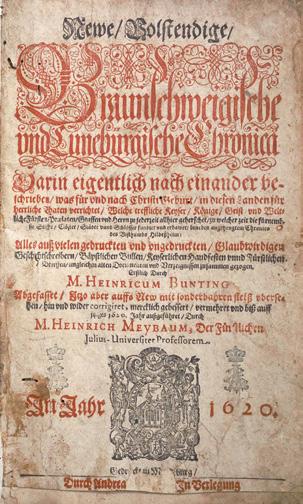 Newe/ Volstendige/
Braunschweigische
und Luneburgische Chronica
Darin eigentlich nach einander be-
schrieben/ was für und nach Christi Geburt/ in diesen Landen für
herrliche Thaten verrichtet/ Welche treffliche Keyser/ Könige/ Geist- und Welt-
liche Fürsten/ Praelaten/ Graffen und Herrn zu jederzeit alhier geherschet/ zu welcher zeit die
Stiffte/ Clöster/ Städte und Schlösser fundirt und erbawet:
des Bisthumbs Hildesheim:
Alles auß vielen gedruckten und ungedruckten/ Glaubwirdigen
Geschichtschreibern/ Bäpstlichen Bullen/ Keyserlichen Handfesten unnd Fürstlichen
zusammen gezogen,
Erstlich Durch
M. Heinricum Bunting
Abgefasset/ Itzo aber auffs New mit sonderbahren fleiß uberse-
hen/ hin und wider corrigiret, mercklich gebessert/ vermehret und biß auff
1620. Jahr außgeführet/ Durch
M. Heinrich Meybaum, Der Fürstlichen
Julius-Universitet Professorem.
Im Jahr 1620.
Durch Andrea In Verlegung